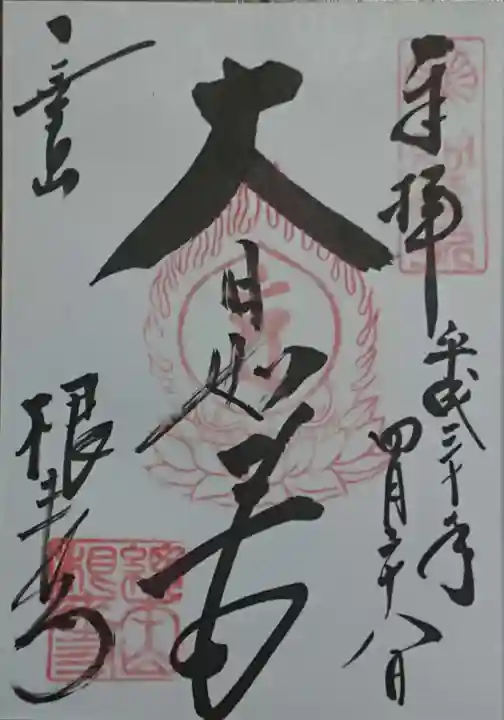 奉拝
平成三十年
四月二十八日
大日如来
一乗山
根来寺